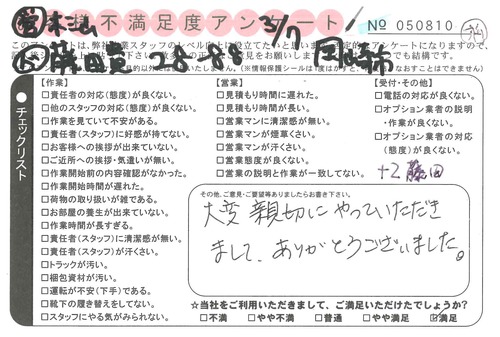 不満足度アンケート
3/7
No 050810
岡崎
28-88
チェックリスト
【作業】
□責任者の対応(態度)が良くない。
□他のスタッフの対応(態度)が良くない。
□作業を見ていて不安がある。
□責任者(スタッフ)に好感が持てない。
□お客様への挨拶が出来ていない。
□ご近所への挨拶・気遣いが無い。
□作業開始前の内容確認がなかった。
□作業開始時間が遅れた。
□荷物の取り扱いが雑である。
□お部屋の養生が出来ていない。
□作業時間が長すぎる。
□責任者(スタッフ)に清潔感が無い。
□責任者(スタッフ)が汗くさい。
□トラックが汚い。
□梱包資材が汚い。
□運転が不安(下手)である。
□靴下の履き替えをしてない。
□スタッフにやる気がみられない。
【営業】
□見積もり時間に遅れた。
□見積もり時間が長い。
□営業マンに清潔感が無い。
□営業マンが煙草くさい。
□営業マンが汗くさい。
□営業態度が良くない。
□営業の説明と作業が一致してない。
【受付・その他】
□電話の対応が良くない。
□オプション業者の説明
・作業が良くない。
□オプション業者の対応
(態度)が良くない。
+2 藤田
その他、ご意見・ご要望等ありましたらお書き下さい。
大変親切にやっていただき
まして、ありがとうございました。
☆当社をご利用いただきまして、ご満足いただけたでしょうか?
□不満 □やや不満 □普通 □やや満足 ☑満足